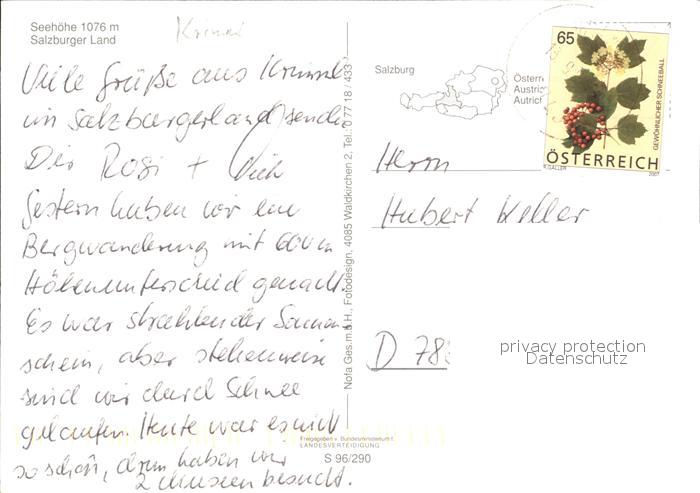 Seehöhe 1076 m
Salzburger Land
Viele Grüße aus Krimml
im Salzburgerland sendet
Dir Rosi +
gestern haben wir eine
Bergwanderung mit 600 m
Höhenunterschied gemacht.
Es war strahlender Sonnen
schein, aber stellenweise
sind wir durch Schnee
gelaufen. Heute war es nicht
so schön, drum haben wir
2 Museen besucht.
Nofa Ges.m.b.H., Fotodesign, 4085 Waldkirchen 2, Tel. 0 77 18 / 433
Freigegeben v. Bundesministerium f.
LANDESVERTEIDIGUNG
S 96/290
Salzburg
Österre
Austria
Autrich
65
GEWÖHNLICHER SCHNEEBALL
ÖSTERREICH
2007
Herrn
Hubert Keller
D 78
privacy protection
Datenschutz